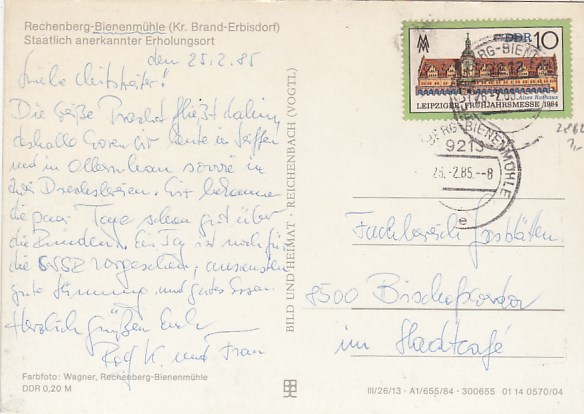 Rechenberg-Bienenmühle (Kr. Brand-Erbisdorf)
Staatlich anerkannter Erholungsort
den 25.2.85
Liebe Mitstreiter!
Die Zeit
deshalb waren wir heute in Seiffen
und in Olbernhau sowie in
zwei Drechslereien. Wir bekommen
die paar Tage schon gut über
die Runden. Ein Tag ist noch für
die vorgesehen, ansonsten
gute Stimmung und gutes Essen.
Herzlich grüßen Euch
Rolf K. und Frau
Farbfoto: Wagner, Rechenberg-Bienenmühle
DDR 0,20 M
BILD UND HEIMAT · REICHENBACH (VOGTL)
DDR 10
Altes Rathaus
LEIPZIGER FRÜHJAHRSMESSE 1984
BERG-BIENENMÜHLE
9213
26.-2.85.--8
e
Fachbereich Gaststätten
8500 Bischofswerda
im Stadtcafé
III/26/13 · A1/655/84 · 300655 01 14 0570/04